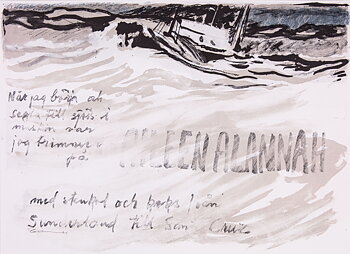 När jag börja att
segla till sjöss i
var
jag trimmer
på
AILEEN ALANNAH
med stenkol och koks från
Sunderland till Cruz